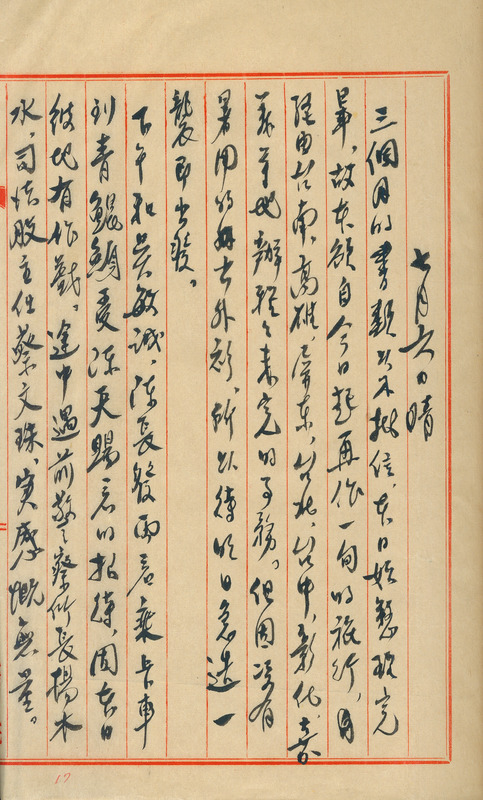 七月六日晴
三個月的書類以及批信,本日始整理完
畢,故本欲自今日起再作一旬的旅行,自
經由台南,高雄,屏東,台北,台中,彰化,嘉
義等地辦理未完的事務。但因沒有
暑用的上外衫,所以待明日急造一
襲即出發。
下午和吳敏誠,陳長發兩君乘卡車
到青鯤鯓受陳天賜君的招待,因本日
彼地有作戲。途中遇前警察所長楊木
水,司法股主任蔡文珠,實感慨無量。
17